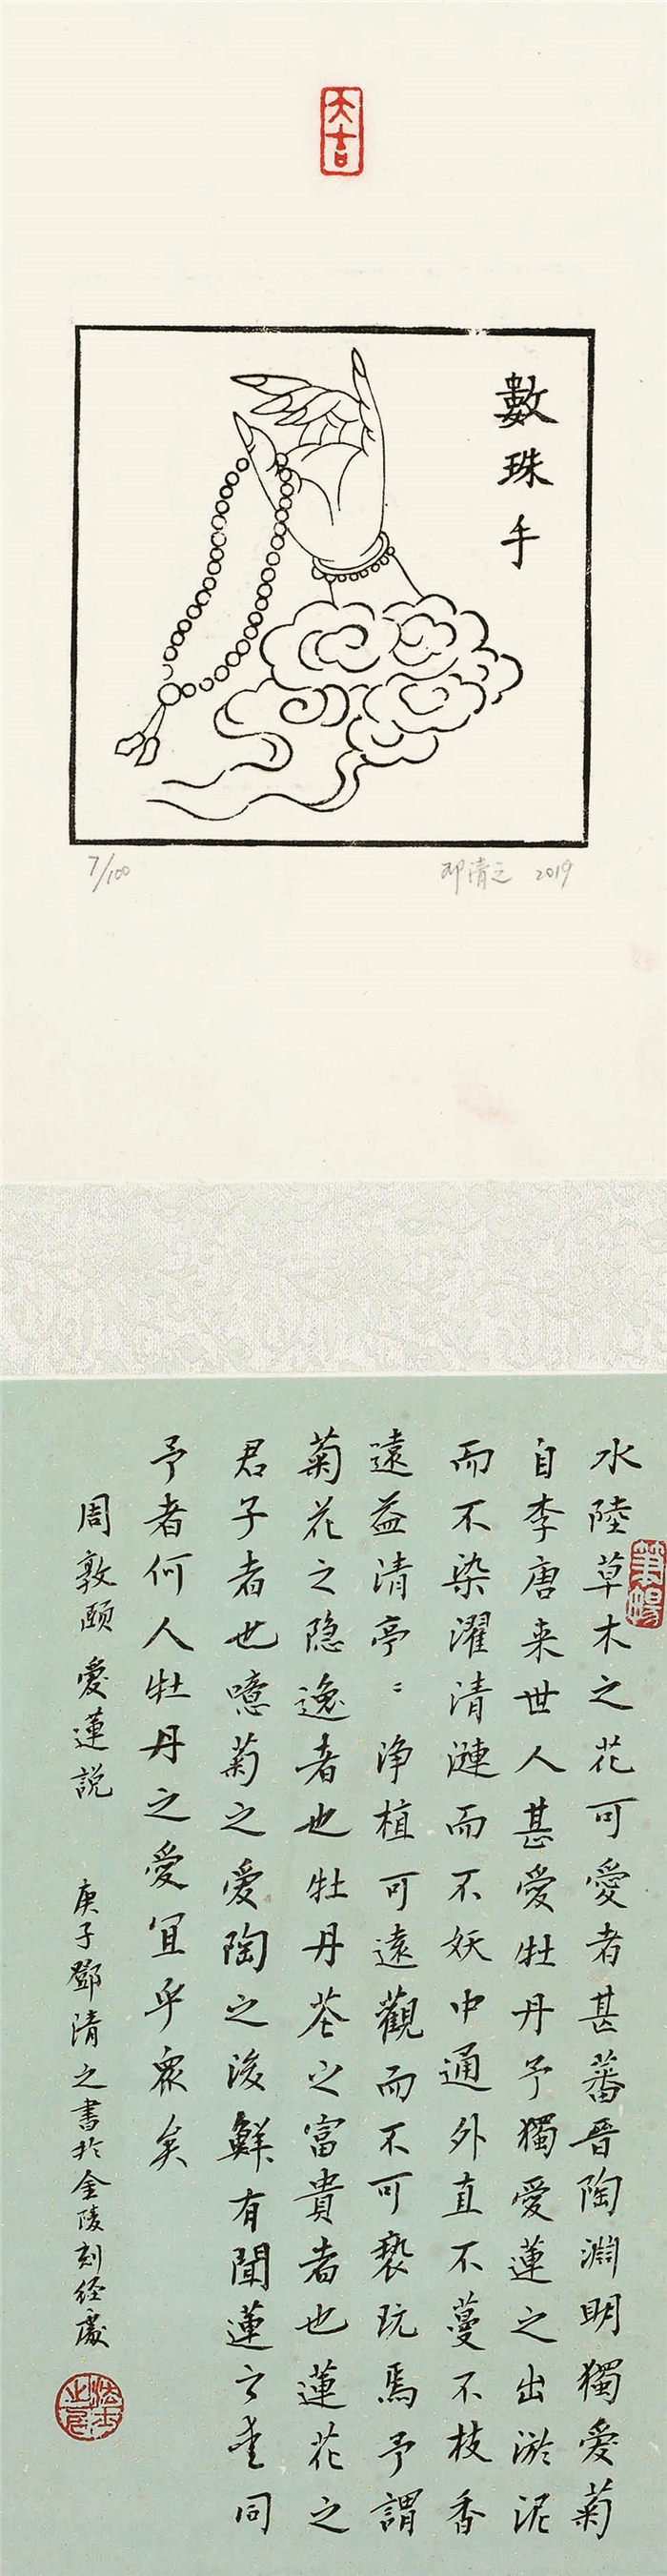 大吉
數珠手
7/100
邓清之 2019
水陸草木之花可愛者甚蕃晉陶淵明獨愛菊
自李唐来世人甚愛牡丹予獨愛蓮之出淤泥
而不染濯清漣而不妖中通外直不蔓不枝香
遠益清亭〻浄植可遠觀而不可褻玩焉予謂
菊花之隐逸者也牡丹花之富貴者也蓮花之
君子者也噫菊之愛陶之後鮮有聞蓮之愛同
予者何人牡丹之愛宜乎衆矣
周敦頤愛蓮説 庚子鄧清之書於金陵刻经處